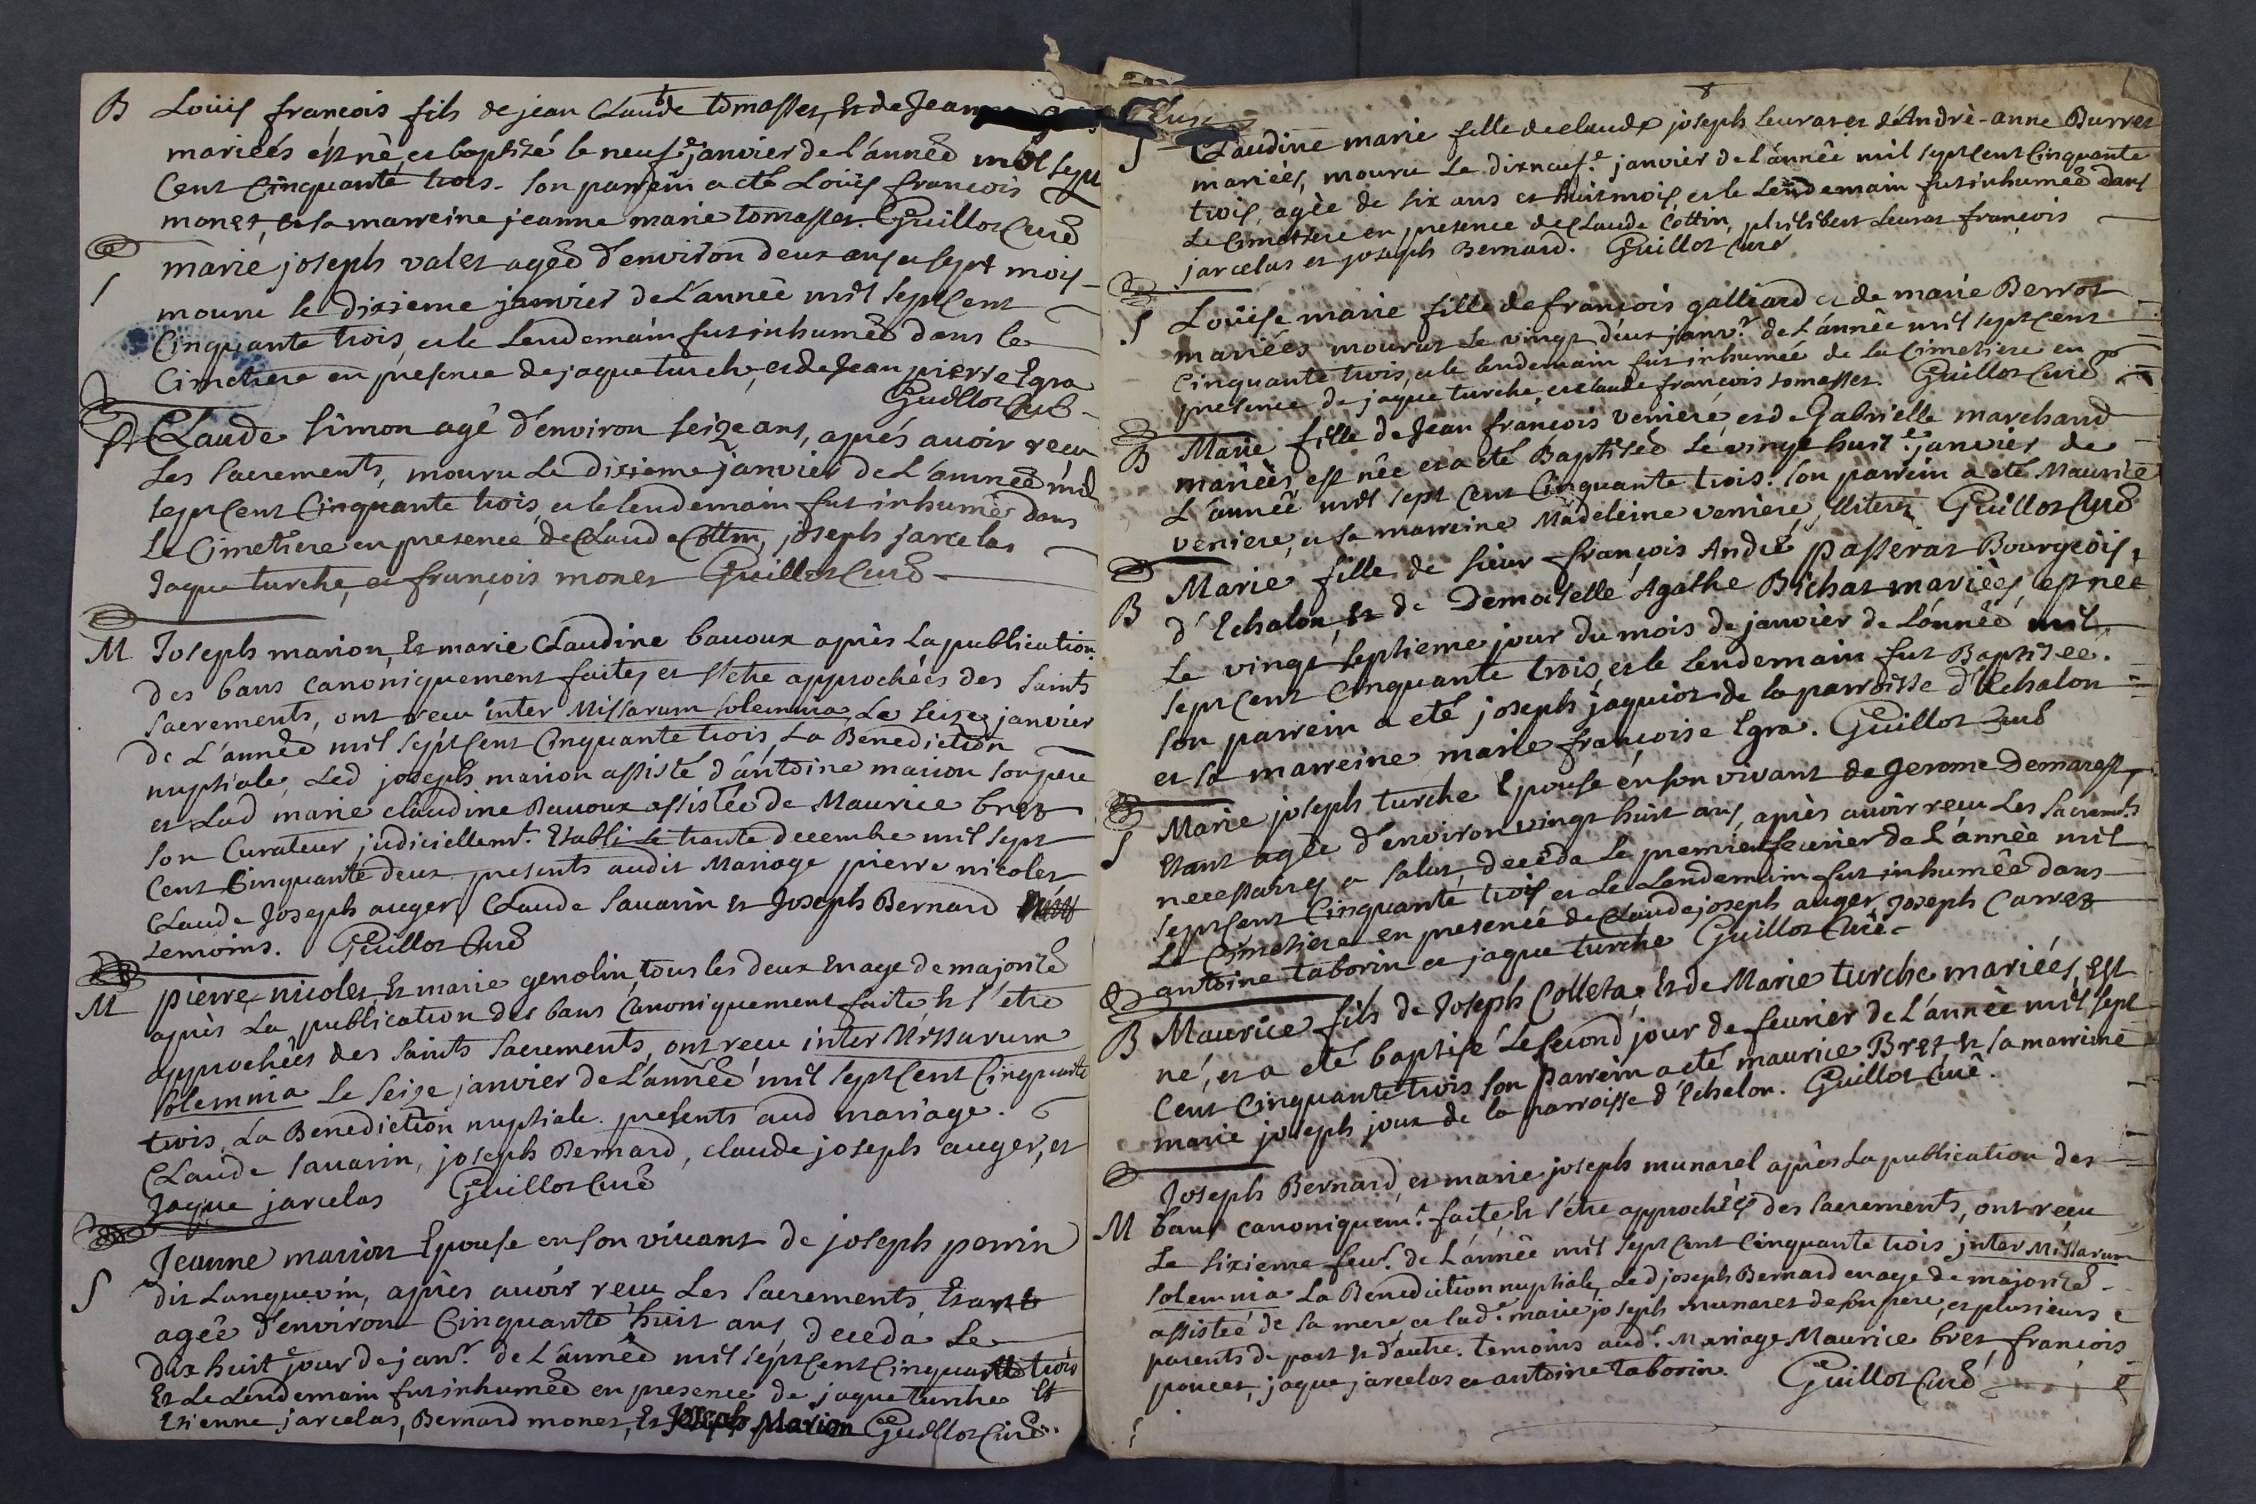 B Loüis francois fils de jean Claude tomasset, Et de Jeanne
mariéés ést né, et baptizé le neuf.e janvier de l'année mil sept
Cent Cinquante trois. Son parrein a eté Loüis francois
monet, et sa marreine jeanne marie tomasset. Guillot Curé
S marie joseph valet ageé d'environ deux ans et sept mois
mouru le dixieme janvier de L'année mil sept Cent
Cinquante trois, et le Lendemain fut inhumeé dans le
Cimetiere en presence de jaque turche, et de Jean pierre Egra
Guillot Curé
S Claude Simon agé d'environ seize ans, aprés avoir recu
Les Sacrements, mouru Le dixieme janvier de L'année mil
sept Cent Cinquante trois, et le lendemain fut inhumé dans
Le Cimetiere en presence de Claude Cottin, joseph jarcelas
Jaque turche, et françois monet Guillot Curé
M Joseph marion, Et marie Claudine bavoux aprés La publication
des bans canoniquement faite, et s'etre approchéés des saints
sacrements, ont recu inter Missarum solemnia Le seize janvier
de L'année mil sept Cent Cinquante trois, La Benediction
nuptiale, Led joseph marion assisté d'antoine marion son pere
et Lad marie claudine Bavoux assistée de Maurice bret
son Curateur judiciellemt. Etabli le trante decembre mil sept
Cent Cinquante deux presents audit Mariage pierre nicolet
Claude Joseph auger, Claude Savarin et Joseph Bernard
temoins. Guillot Curé
M pierre nicolet, Et marie genolin, tous les deux En age de majorité
aprés La publication des bans Canoniquement faite Et s'etre
approchéés des saints Sacrements, ont recu inter Missarum
solemnia Le seize janvier de L'année mil sept Cent Cinquante
trois, La Benediction nuptiale. presents aud mariage.
Claude Savarin, joseph Bernard, claude joseph auger, et
Jaque jarcelas Guillot Curé
S Jeanne marion Epouse en son vivant de joseph perrin
dit Languevin, aprés avoir recu Les Sacrements, Etant
agée d'environ Cinquante huit ans, deceda Le
dix huit.e jour de janr. de L'année mil sept Cent Cinquante trois
Et Le Lendemain fut inhumeé en presence de jaque turche Et
Etienne jarcelas, Bernard monet, Et Joseph Marion Guillot Curé.
S Claudine marie fille de claude joseph Leurat et d'André-anne Burret
mariéés, mouru Le dixneuf.e janvier de L'année mil sept Cent Cinquante
trois, agée de six ans et huit mois, et le Lendemain fut inhumeé dans
Le Cimetiere en presence de Claude Cottin, philibert Leurat francois
jarcelas et joseph Bernard. Guillot Curé
S Loüise marie fille de françois galliard et de marie Berrot
mariéés mourut Le vingt deux janv.r de L'année mil sept cent
Cinquante trois, et le lendemain fut inhumeé de la Cimetiere en
presence de jaque turche, et claude francois tomasset. Guillot Curé
B Marie fille de Jean francois veniere, et de Gabrielle marchand
mariéés, est née et a eté Baptiseé Le vingt huit.e janvier de
L'année mil sept Cent Cinquante trois. son parrein a eté Maurice
veniere, et sa marreine Madeleine veniere, illiterés Guillot Curé
B Marie fille de sieur françois André passerat Bourgeois,
d'Echalon, Et de Demoiselle Agathe Bichat mariéés, est née
Le vingt septieme jour du mois de janvier de L'année mil
sept Cent Cinquante trois, et le Lendemain fut Baptiseé.
son parrein a eté joseph jaquiot de la parroisse d'Echalon
et sa marreine marie françoise Egra. Guillot Curé
S Marie joseph turche Epouse en son vivant de Jerome Demarest,
Etant agée d'environ vingt huit ans, aprés avoir recu Les Sacremts
necessaires a salut, deceda Le premier fevrier de L'année mil
sept Cent Cinquante trois et Le Lendemain fut inhumée dans
Le Cimetiere en presence de Claude joseph auger, Joseph Carret
antoine taborin et jaque turche Guillot Curé
B Maurice fils de Joseph Colleta, Et de Marie turche mariéés, est
né, et a eté baptisé Le second jour de fevrier de L'année mil sept
Cent Cinquante trois son Parrein a eté maurice Bret, et sa marreine
marie joseph joux de la parroisse d'Echalon. Guillot Curé.
M Joseph Bernard, et marie joseph munaret aprés La publication des
bans canoniquemt. faite, Et s'etre approchéés des sacrements, ont recu
Le sixieme fevr. de L'année mil sept Cent Cinquante trois, inter Missarum
solemnia La Benediction nuptiale, Led joseph Bernard en age de majorité
assisteé de sa mere, et lade. marie joseph munaret de son pere, et plusieurs
parents de part Et d'autre. temoins audt. Mariage Maurice bret, francois
poncet, jaque jarcelas et antoine taborin. Guillot Curé